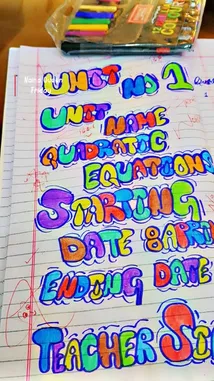 UNIT NO 1
UNIT NAME
QUADRATIC
EQUATIONS
STARTING
DATE 8APRI
ENDING DATE
TEACHER SI